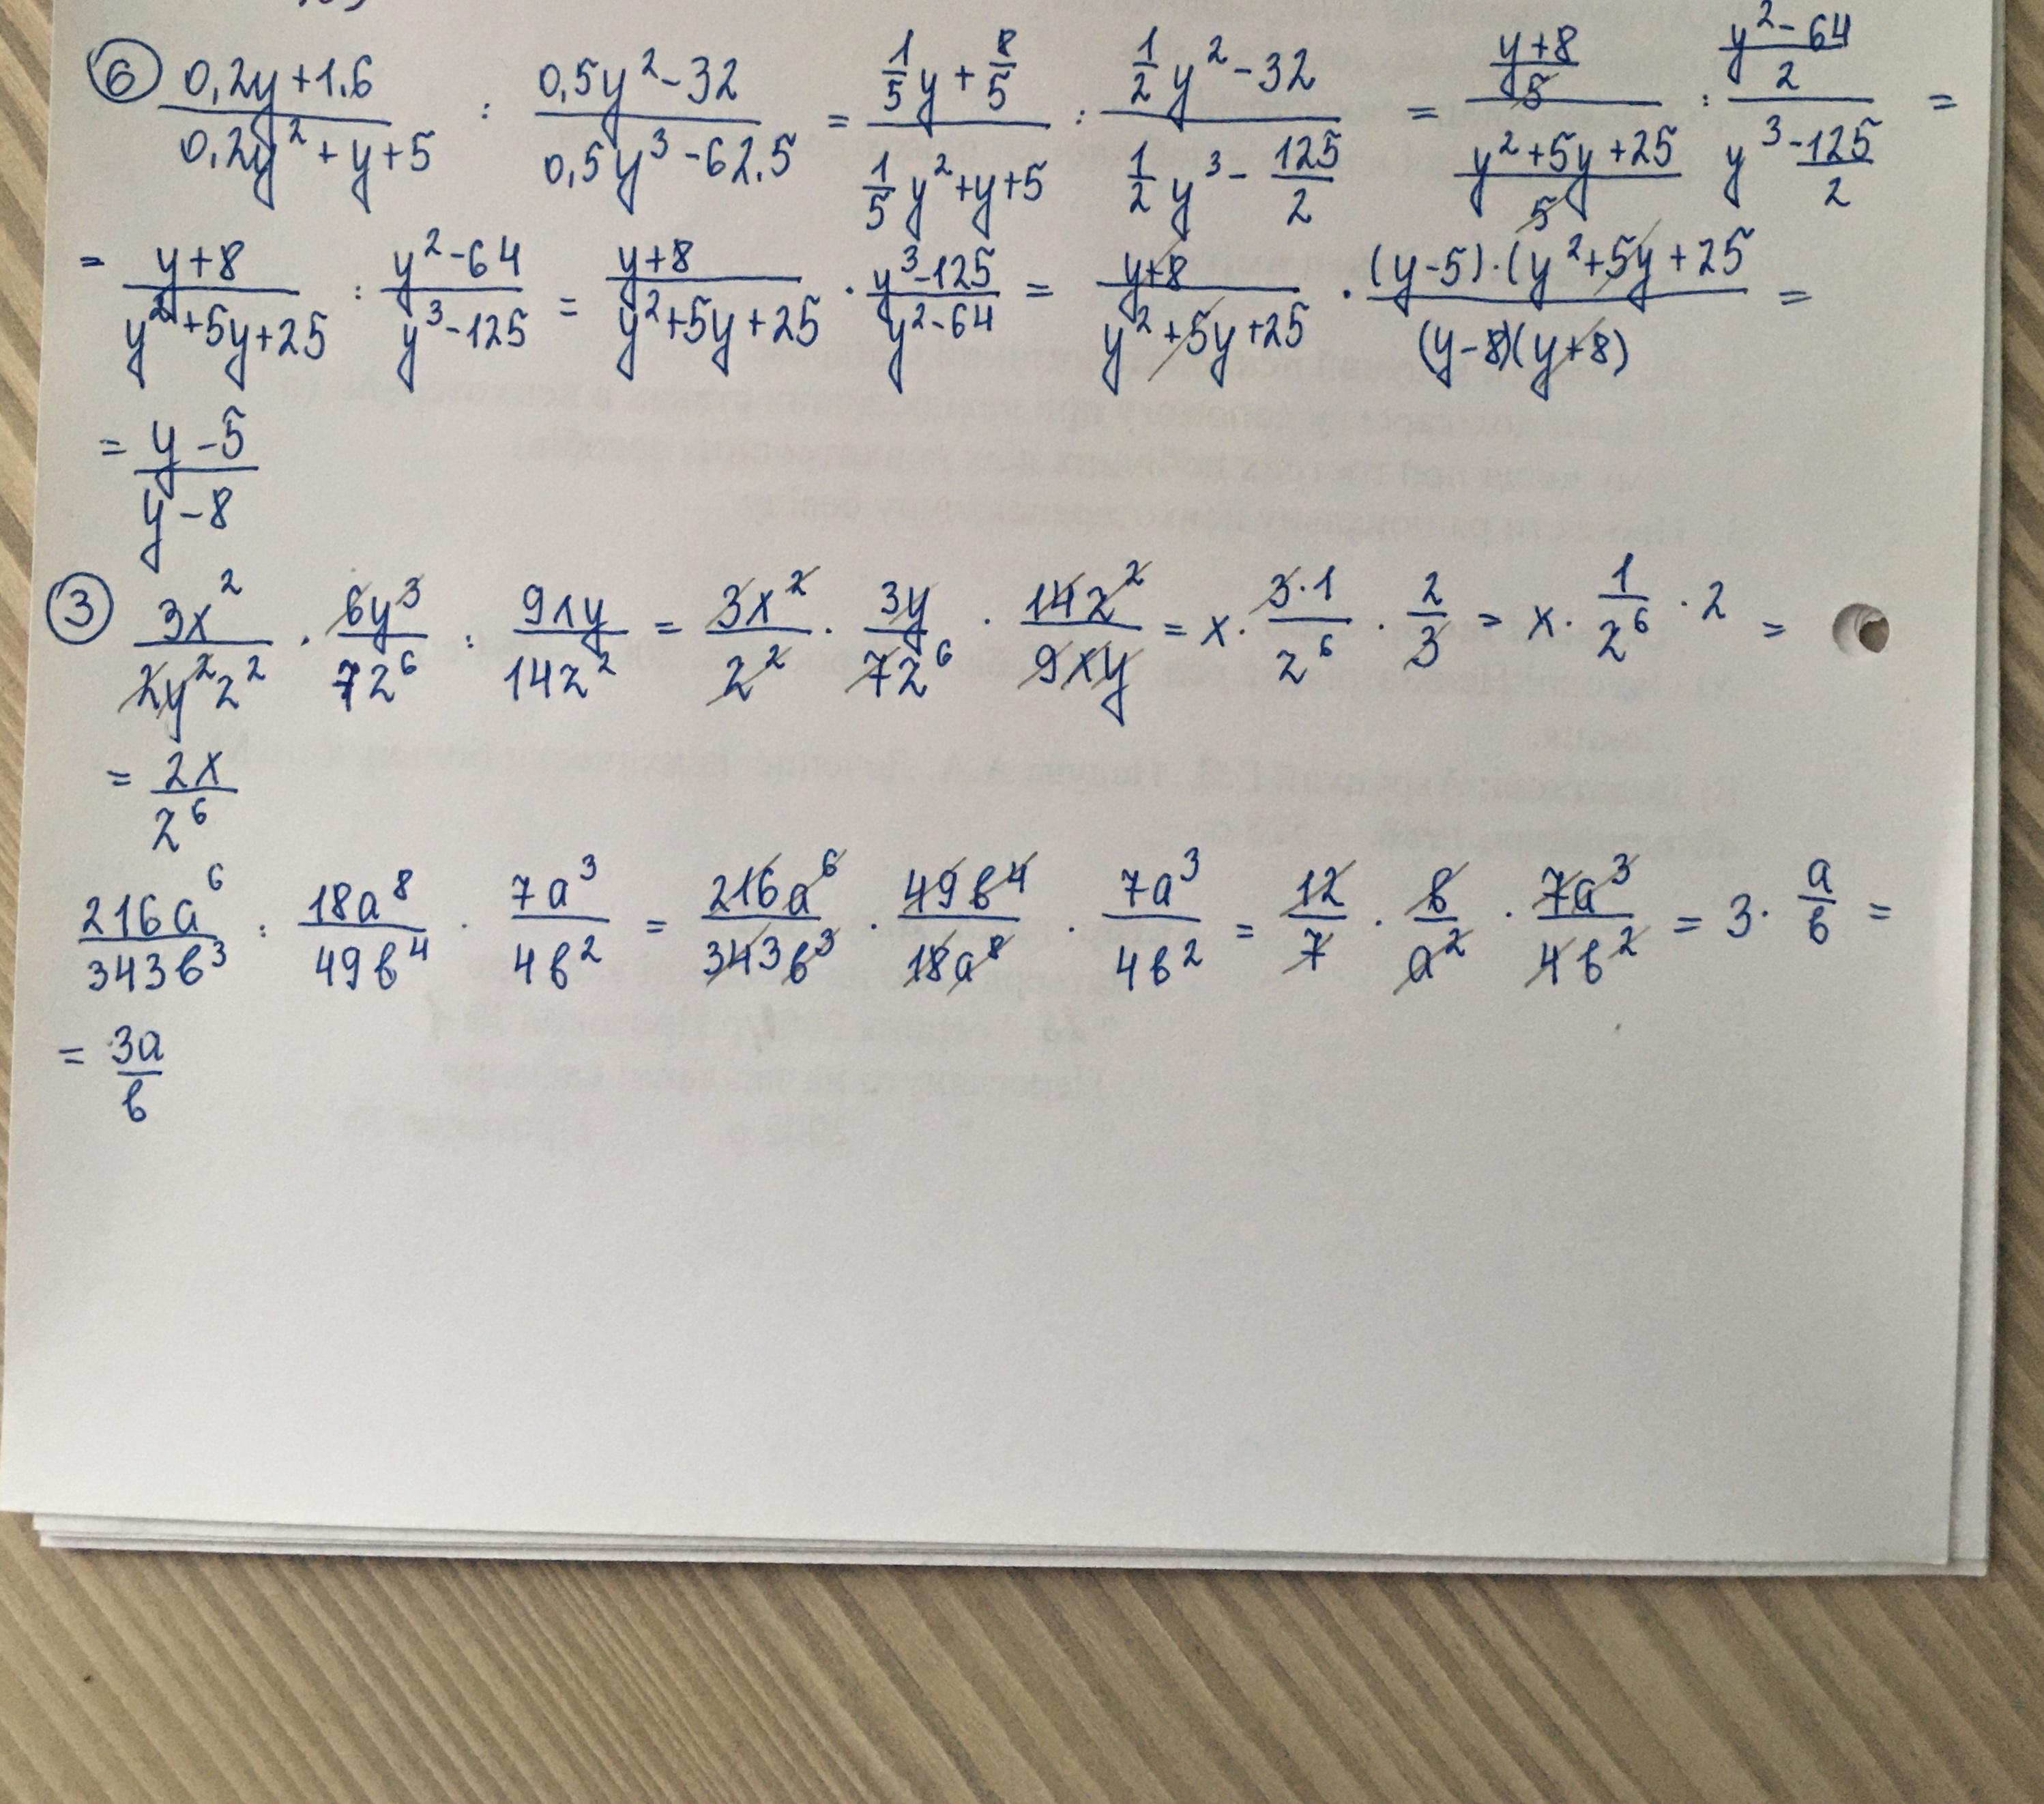 ⑥ (0,2y+1.6)/(0,2y²+y+5) : (0,5y²-32)/(0,5y³-62.5) = (1/5 y + 8/5)/(1/5 y²+y+5) : (1/2 y²-32)/(1/2 y³ - 125/2) = ((y+8)/5)/((y²+5y+25)/5) : ((y²-64)/2)/((y³-125)/2) =
= (y+8)/(y²+5y+25) : (y²-64)/(y³-125) = (y+8)/(y²+5y+25) · (y³-125)/(y²-64) = (y+8)/(y²+5y+25) · ((y-5)·(y²+5y+25)/((y-8)(y+8)) =
= (y-5)/(y-8)
③ 3x²/(2y²z²) · 6y³/(7z⁶) : 9xy/(14z²) = 3x²/z² · 3y/(7z⁶) · 14z²/(9xy) = x · (3·1)/z⁶ · 2/3 = x · 1/z⁶ · 2 =
= 2x/z⁶
216a⁶/(343b³) : 18a⁸/(49b⁴) · 7a³/(4b²) = 216a⁶/(343b³) · 49b⁴/(18a⁸) · 7a³/(4b²) = 12/7 · b/a² · 7a³/(4b²) = 3 · a/b =
= 3a/b